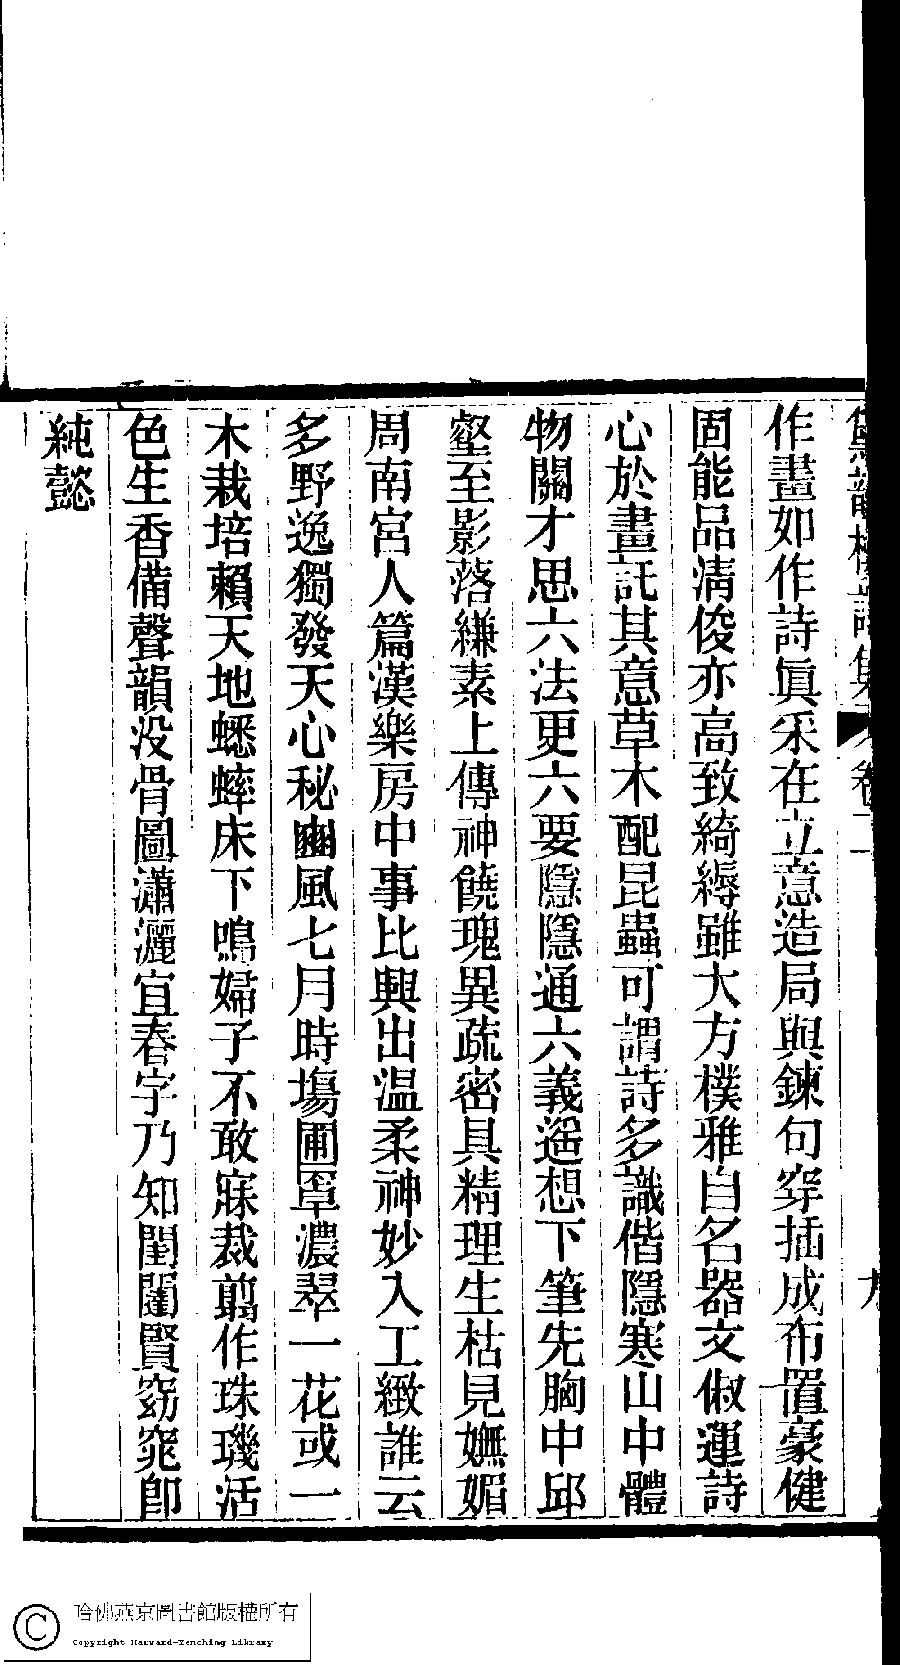 黛韻樓詩集 卷二 九
作畫如作詩眞采在立意造局與鍊句穿插成布置豪健
固能品淸俊亦高致綺縟雖大方樸雅自名器文俶運詩
心於畫託其意草木配昆蟲可謂詩多識偕隱寒山中體
物關才思六法更六要隱隱通六義遥想下筆先胸中邱
壑至影落縑素上傳神饒瑰異疏密具精理生枯見嫵媚
周南宮人篇漢樂房中事比興出温柔神妙入工緻誰云
多野逸獨發天心秘豳風七月時塲圃罩濃翠一花或一
木栽培賴天地蟋蟀床下鳴婦子不敢寐裁剪作珠璣活
色生香備聲韻没骨圖瀟灑宜春字乃知閨闈賢窈窕卽
純懿
哈佛燕京圖書館版權所有
Copyright Harvard-Yenching Library